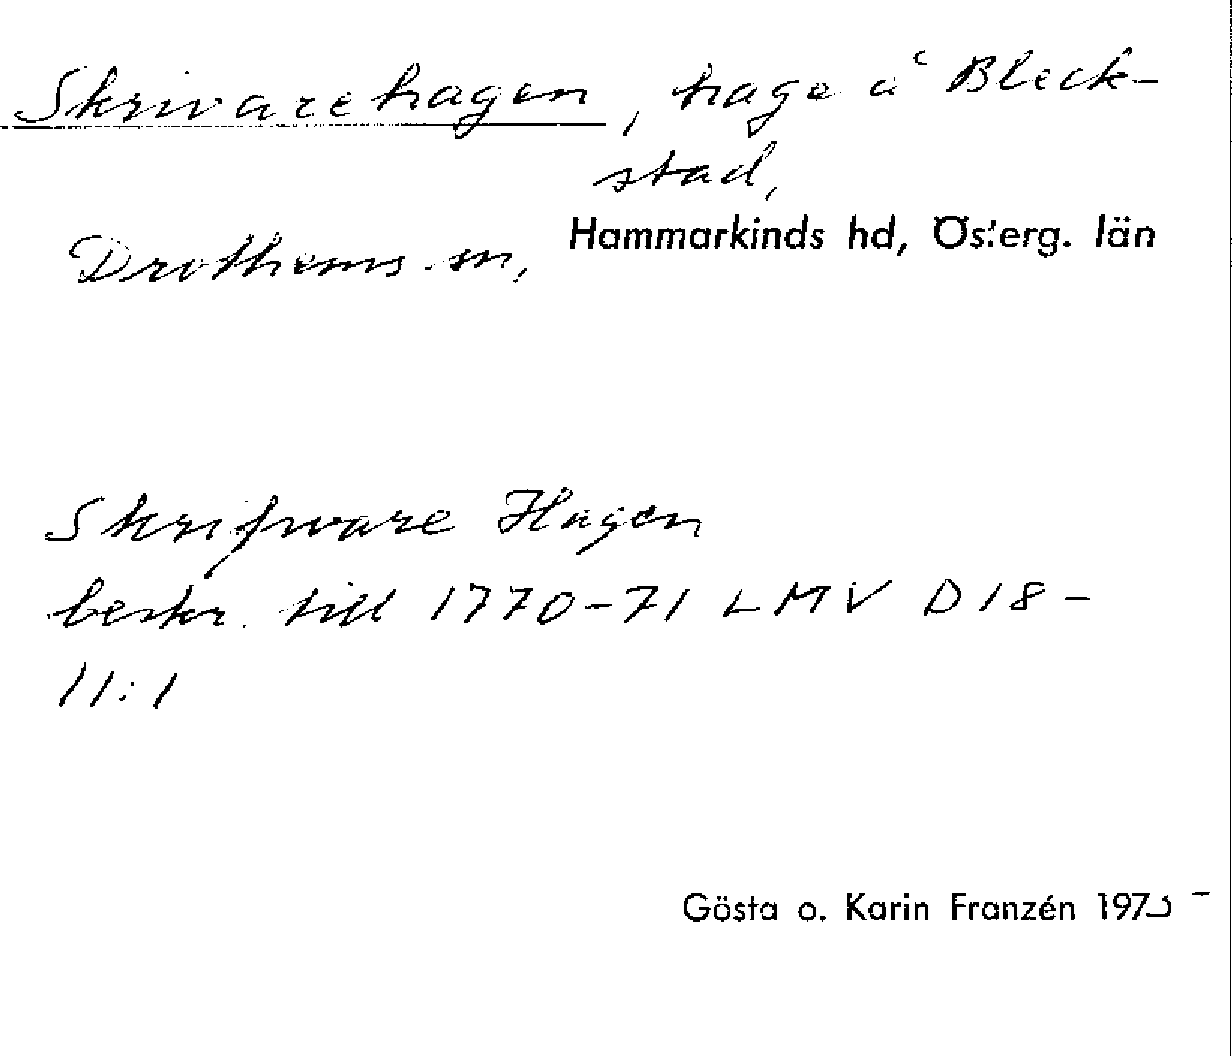 Skrivarehagen, hage å Bleck-
stad,
Drothems sn, Hammarkinds hd, Österg. län
Skrifware Hagen
beskr. till 1770-71 LMV D18-
11:1
Gösta o. Karin Franzén